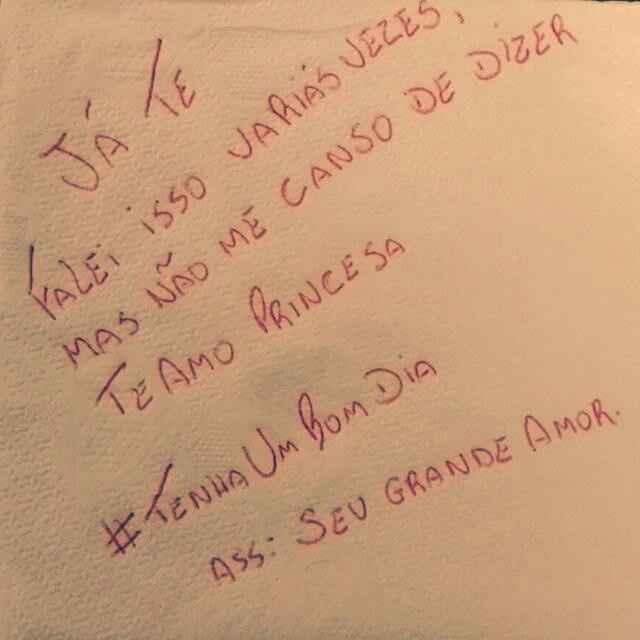 JÁ TE
FALEI ISSO VARIAS VEZES,
MAS NÃO ME CANSO DE DIZER
TE AMO PRINCESA
#TENHA UM BOM DIA
ASS: SEU GRANDE AMOR.